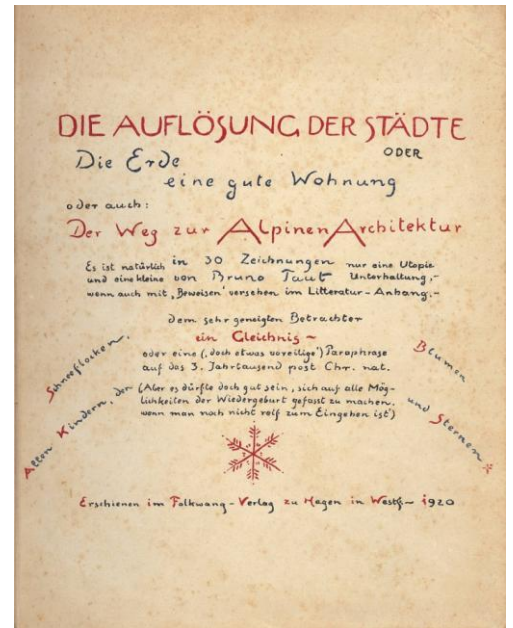 DIE AUFLÖSUNG DER STÄDTE
ODER
Die Erde
eine gute Wohnung
oder auch:
Der Weg zur Alpinen Architektur
Es ist natürlich in 30 Zeichnungen nur eine Utopie
und eine kleine von Bruno Taut Unterhaltung,-
wenn auch mit 'Beweisen' versehen im Litteratur-Anhang.-
dem sehr geneigten Betrachter
ein Gleichnis ~
oder eine (,doch etwas voreilige') Paraphrase
auf das 3. Jahrtausend post Chr. nat.
(Aber es dürfte doch gut sein, sich auf alle Mög-
lichkeiten der Wiedergeburt gefasst zu machen,
wenn man noch nicht reif zum Eingehen ist)
Allen Kindern, der Schneeflocken,
Blumen und Sternen
Erschienen im Folkwang-Verlag zu Hagen in Westf- 1920